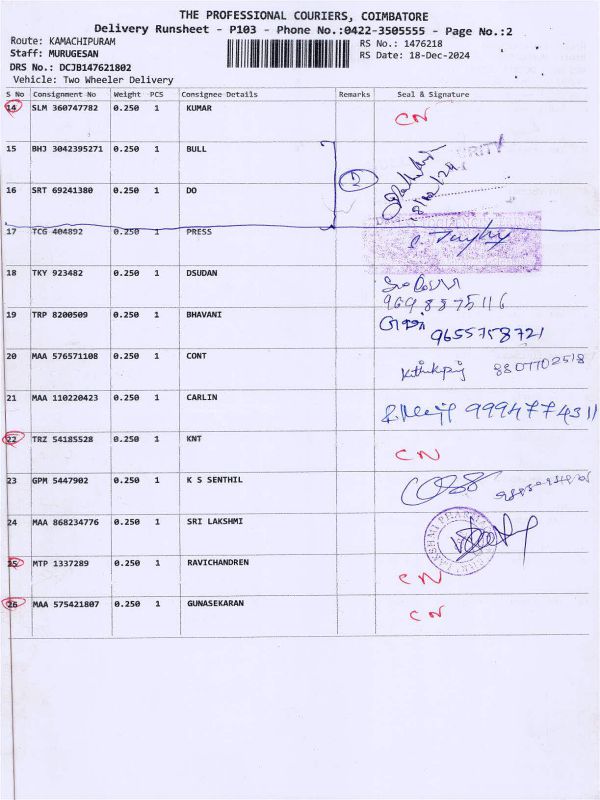 THE PROFESSIONAL COURIERS, COIMBATORE
Delivery Runsheet - P103 - Phone No.:0422-3505555 - Page No.:2
Route: KAMACHIPURAM
RS No.: 1476218
Staff: MURUGESAN
RS Date: 18-Dec-2024
DRS No.: DCJB147621802
Vehicle: Two Wheeler Delivery
S No Consignment No Weight PCS Consignee Details Remarks Seal & Signature
14 SLM 360747782 0.250 1 KUMAR CN
15 BHJ 3042395271 0.250 1 BULL
16 SRT 69241380 0.250 1 DO 2
17 TCG 404892 0.250 1 PRESS
18 TKY 923482 0.250 1 DSUDAN
9698875116
19 TRP 8200509 0.250 1 BHAVANI 9655758721
20 MAA 576571108 0.250 1 CONT 8807702518
21 MAA 110220423 0.250 1 CARLIN 9994774311
22 TRZ 54185528 0.250 1 KNT CN
23 GPM 5447902 0.250 1 K S SENTHIL
24 MAA 868234776 0.250 1 SRI LAKSHMI
25 MTP 1337289 0.250 1 RAVICHANDREN CN
26 MAA 575421807 0.250 1 GUNASEKARAN CN